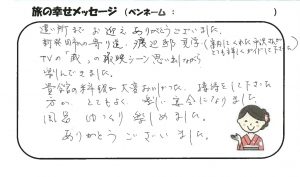 旅の幸せメッセージ (ペンネーム: )
遠い所まで お迎え ありがとうございました。
新発田市の寄り道、渡辺邸 見学 (案内してくれた
とても詳しくガイドして下さった
TVの「蔵」の撮影シーン 思い出しながら
楽しんできました。
貴館の料理が大変おいしかった。接待をして下さった
方の とてもよく 楽しい宴会になりました。
ゆっくり 楽しめました。
ありがとう ございました。